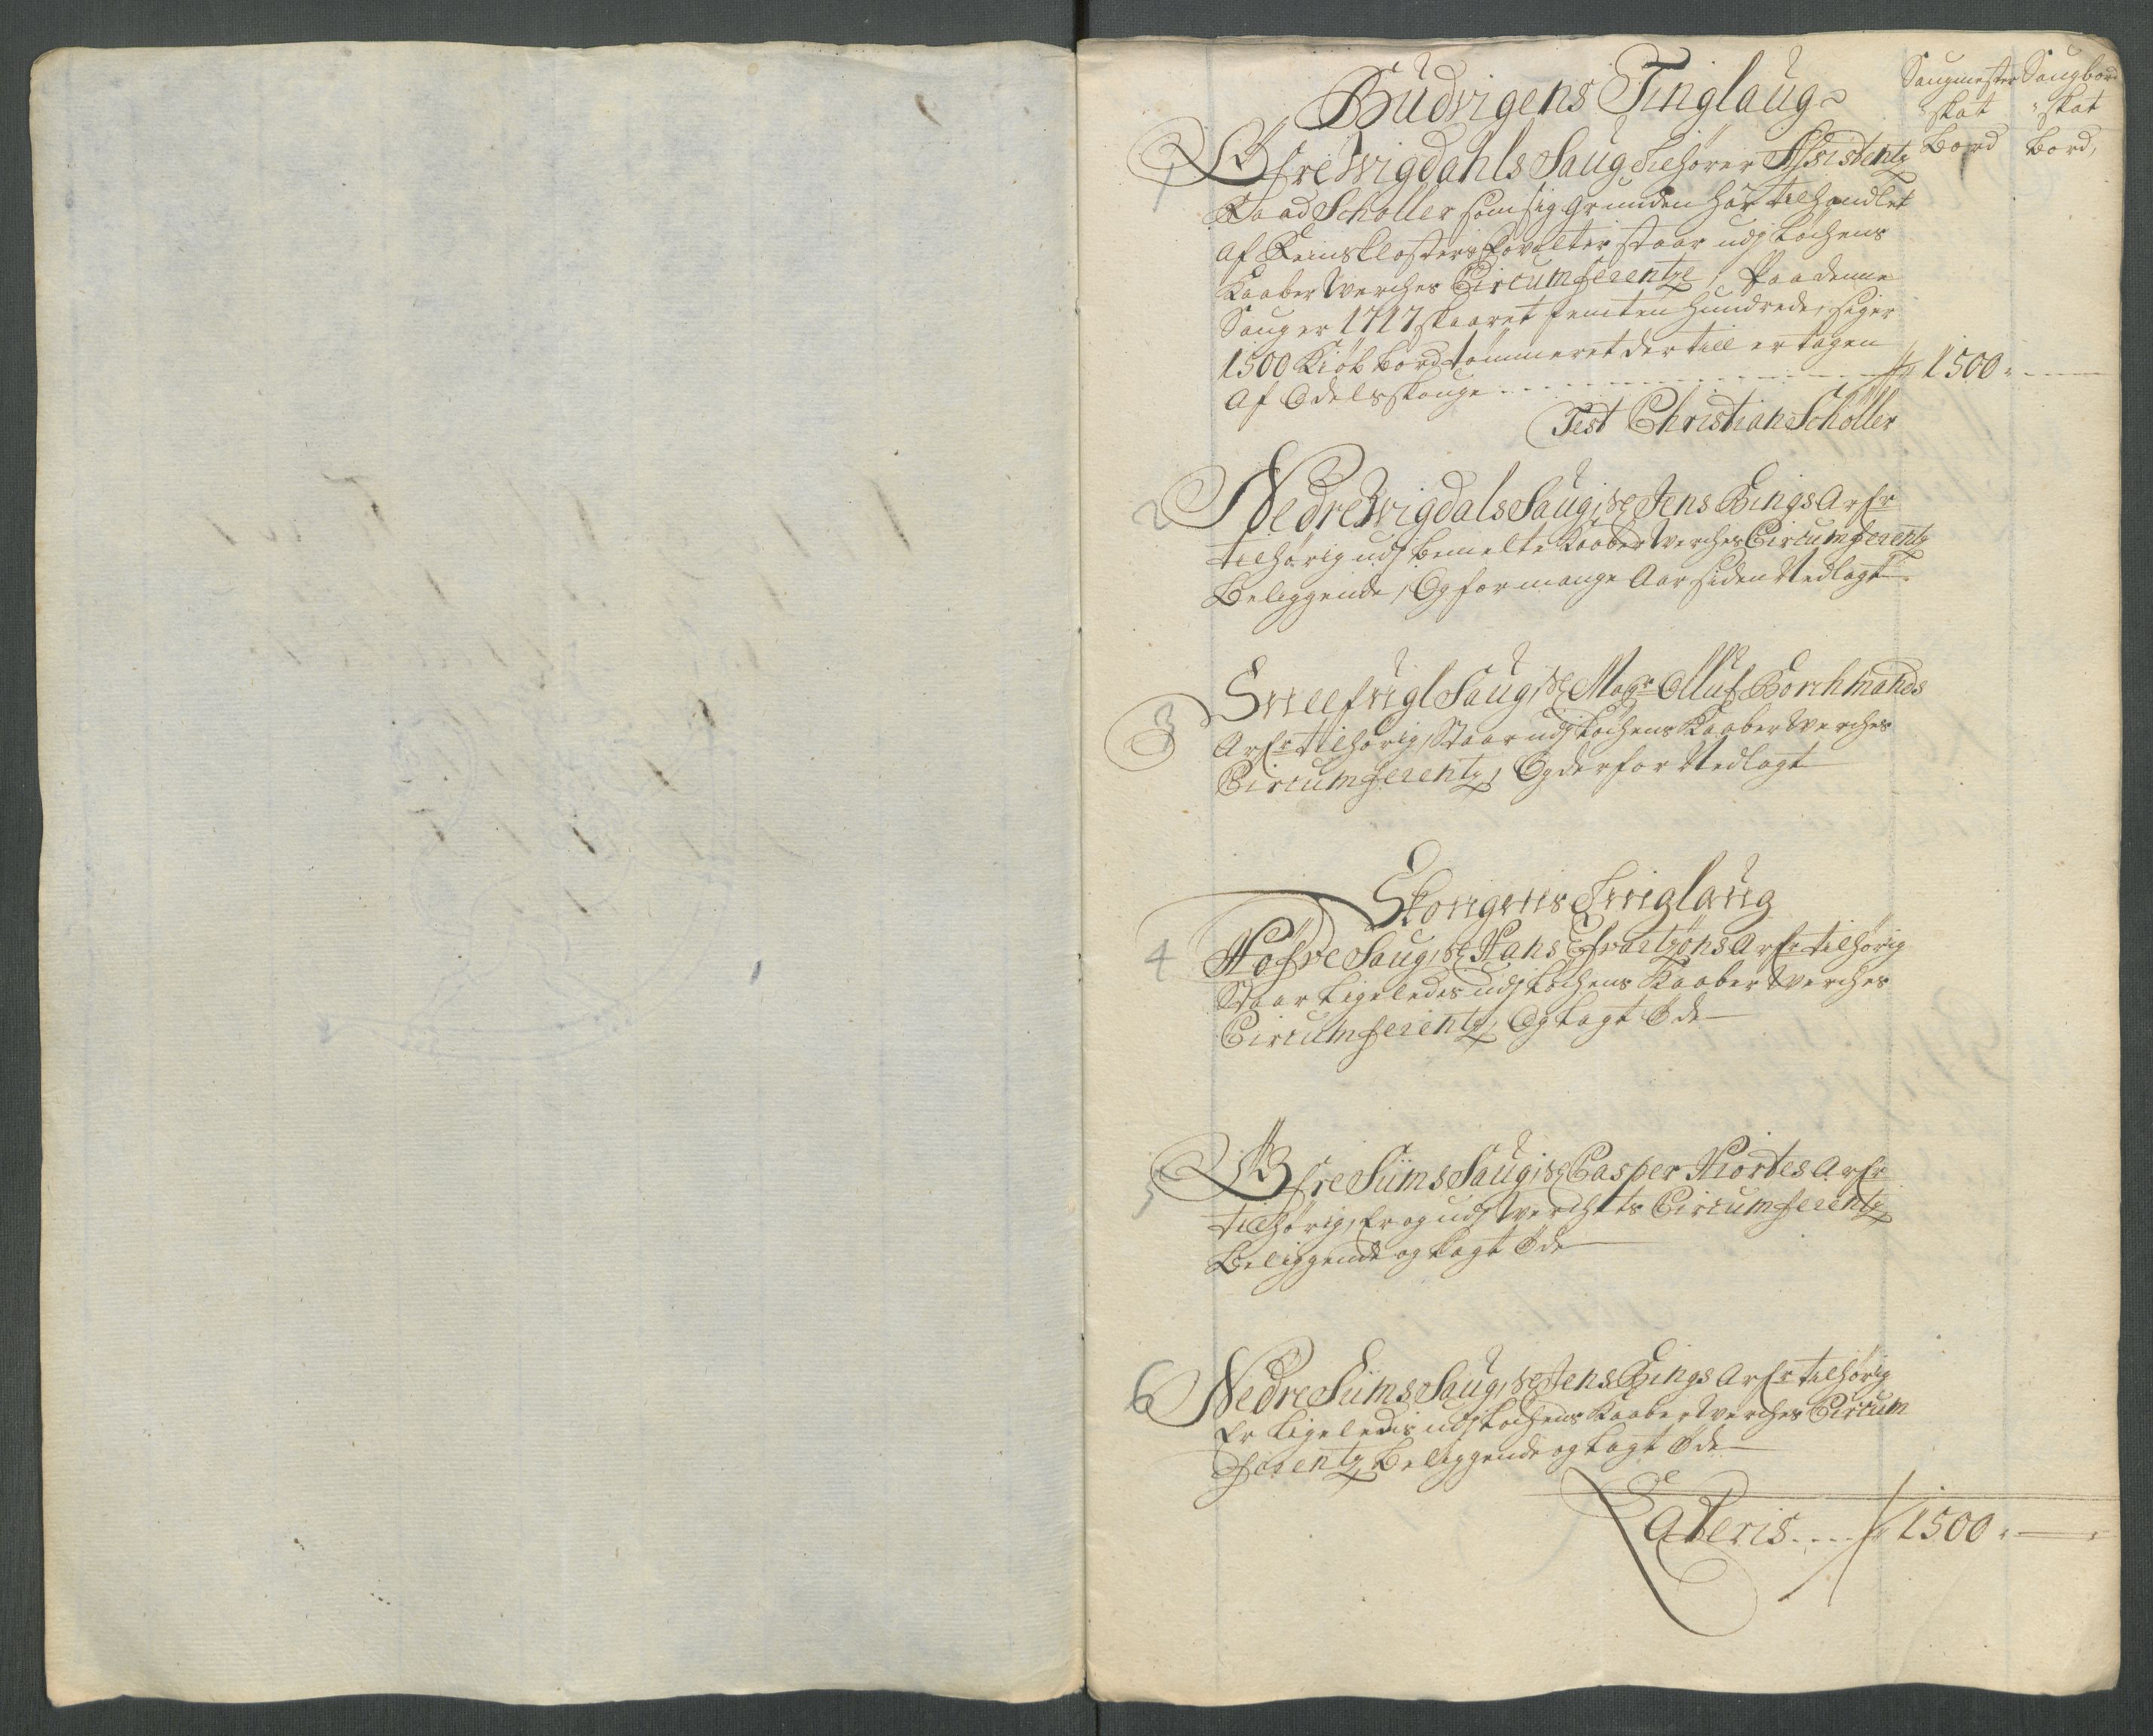 Budvigens Tinglaug
Saugmester Saugbord
skat skat
Bord Bord,
1
Øfre Wigdahls Saug tilhører Assistentz
Raad Schøller som sig Grunden har tilhandlet
af Reins Closters forvalter staar udj Løchens
Kaaber Werches Circumferentze, Paa denne
Saug er 1717 skaaret femten hundrede, siger
1500 Kiøbbord tømmeret der till er tagen
af Odelsskouge 1500
Test Christian Schøller
2
Nedre Wigdals Saug, sl Jens Bings Arfr
tilhørig udj bemelte Kaaber Werches Circumferentz
Beliggende, Og for mange Aar siden Nedlagt
3
Sneefugl Saug, sl Magr Oluf Borchmands
Arfr tilhørig, Staar udj Løchens Kaaber Werches
Circumferentz, Og derfor Nedlagt
Skougens Tinglaug
4
Høfre Saug, sl Hans Efvertzøns Arfr tilhørig
Staar Ligeledes udj Løchens Kaaber Werches
Circumferentz, Og Lagt Øde
5
Øfre Sums Saug, sl Casper Hiortes Arfr
tillhørig, Er og udj Werchets Circumferentz
Beliggende og Lagt Øde
6
Nedre Sums Saug, sl Jens Bings Arfr tilhørig
Er Ligeledes udj Løchens Kaaber Werches Circum
ferentz Beliggende og Lagt Øde
Lateris 1500